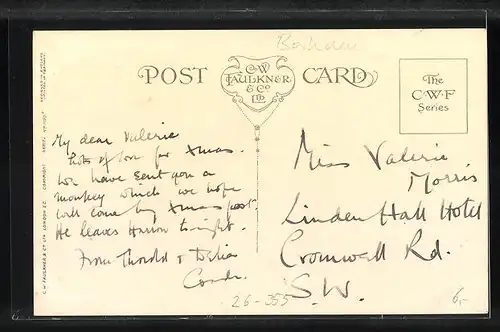 POST
C.W.
FAULKNER
& Co
LTD.
CARD
The
C.W.F
Series
My dear Valerie
Lots of love for Xmas.
We have sent you a
monkey which we hope
will come by Xmas post.
He leaves Harrow tonight.
From Thorold &
Miss Valerie
Morris
Linden Hall Hotel
Cromwell Rd.
S.W.
26-355
6,-
C.W. FAULKNER & CO. LTD. LONDON E.C. COPYRIGHT SERIES